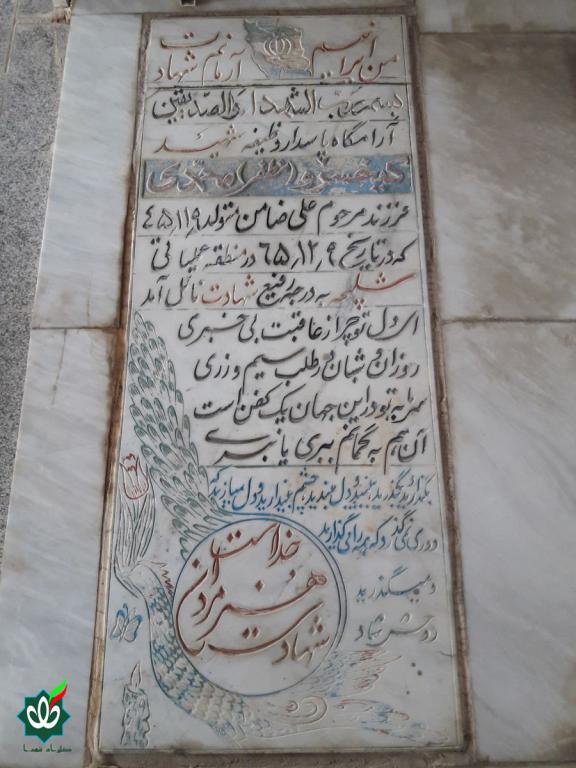 من ایرانیم
آرمانم شهادت
بسم رب الشهداء والصدیقین
آرامگاه پاسدار وظیفه شهید
کیخسرو (مظفر) محمدی
فرزند مرحوم علی ضامن متولد ۴۵٫۱۱٫۹
که در تاریخ ۶۵٫۱۲٫۹ در منطقه عملیاتی
شلمچه به درجه رفیع شهادت نائل آمد
ای دل تو چرا ز عاقبت بی خبری
روزان و شبان در طلب سیم و زری
سرمایه تو در این جهان یک کفن است
آن هم به گمانم ببری یا نبری
بگذارید
دل مبندید چشم بیندازید و دل مبازید که
می گذارید
و میگذرید
روحش شاد
شهادت هنر مردان خداست